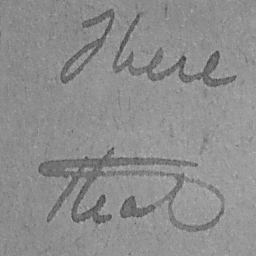 There
that